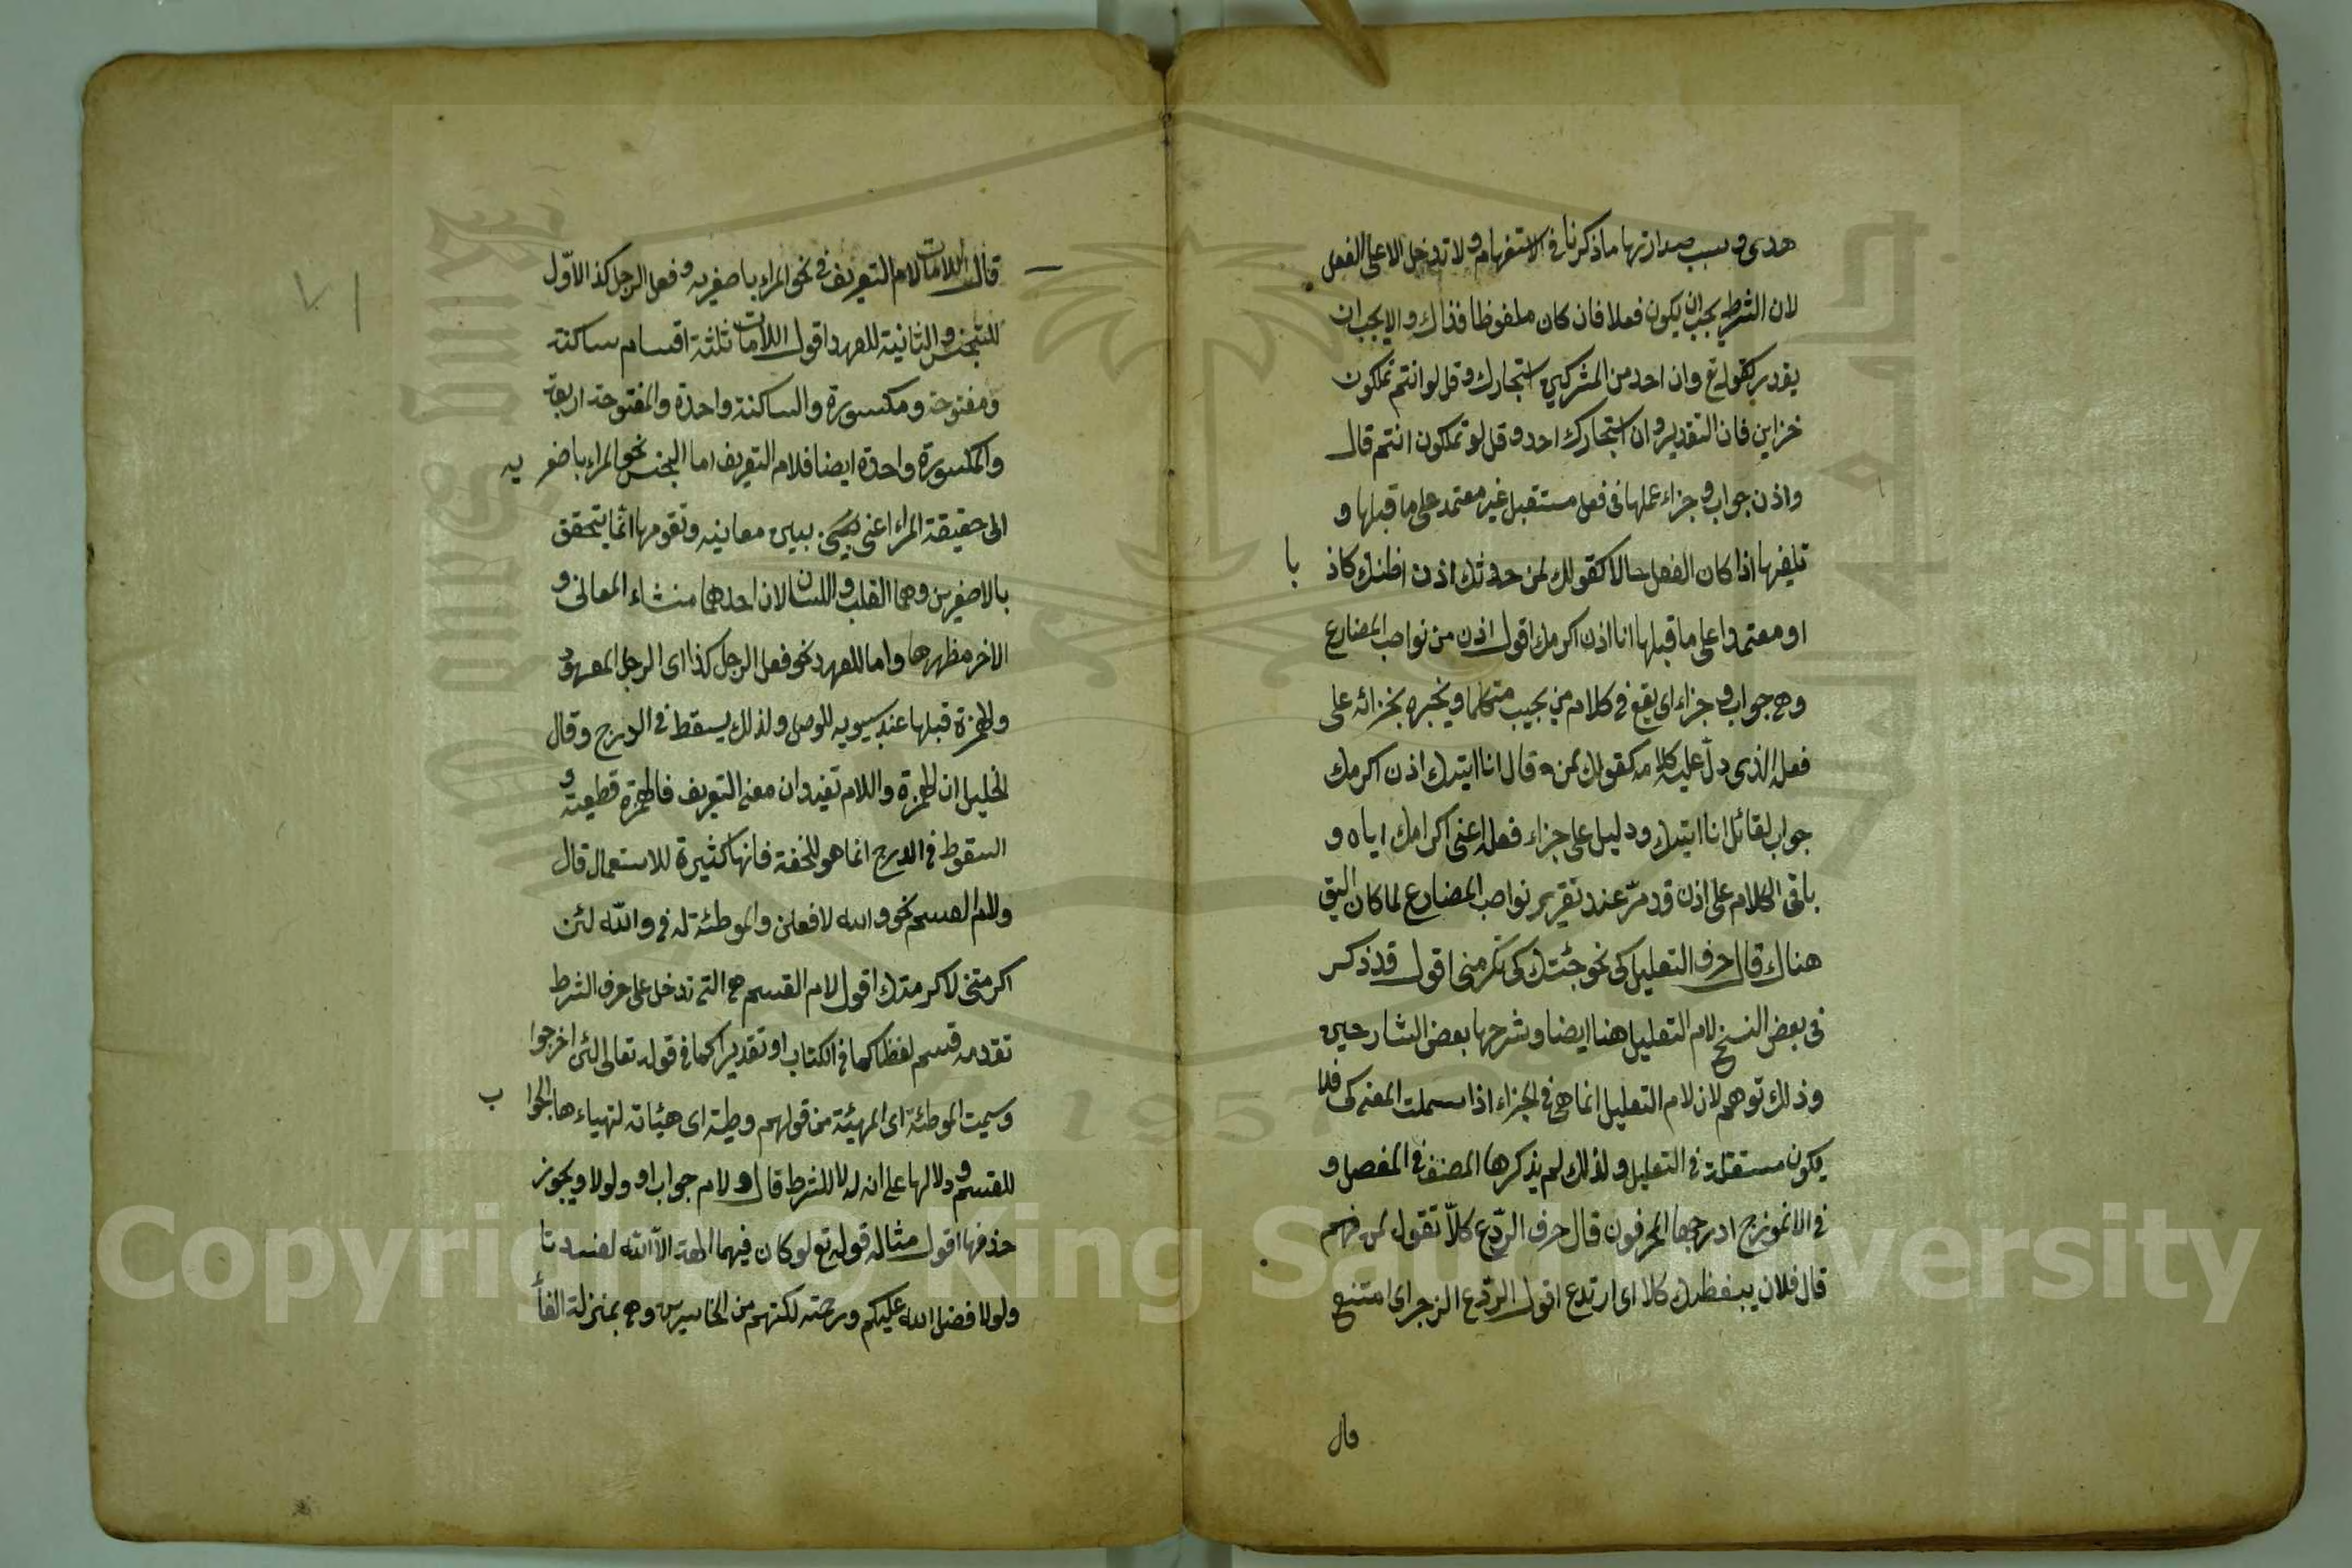 هدى وسبب صدارتها ما ذكرنا فى الاستفهام ولا تدخل الا على الفعل
لان الشرط يجب ان يكون فعلا فان كان ملفوظا فذاك والا يجب ان
يقدر كقوله تع وان احد من المشركين استجارك وقل لو انتم تملكون
خزاين فان التقدير وان استجارك احد وقل لو تملكون انتم قال
واذن جواب وجزاء عملها فى فعل مستقبل غير معتمد على ما قبلها و
تلغيها اذا كان الفعل حالا كقولك لمن حدثك اذن اظنك كاذ با
او معتمدا على ما قبلها انا اذن اكرمك اقول اذن من نواصب المضارع
وهى جواب وجزاء اى يقع فى كلام من يجيب متكلما ويخبره بجزائه على
فعله الذى دل عليه كلامه كقولك لمن قال انا اتيتك اذن اكرمك
جواب لقائل انا اتيتك ودليل على جزاء فعله اعنى اكرامك اياه و
باقى الكلام على اذن قد مرّ عند تقرير نواصب المضارع لما كان اليق
هناك قال حرف التعليل كى نحو جئتك كى تكرمنى اقول قد ذكر
فى بعض النسخ لام التعليل هنا ايضا وشرحها بعض الشارحين
وذلك توهم لان لام التعليل انما هى فى الجزاء اذا سملت المعنى كى فلا
يكون مستقلة فى التعليل ولذلك لم يذكرها المصنف فى المفصل و
فى الانموزج ادرجها المحرفون قال حرف الردّع كلاّ تقول لمن فهم
قال فلان يبغظك كلا اى ارتدع اقول الردّع الزجر اى امتنع
قال
٧١
قال اللامات لام التعريف فى نحو المراء باصغريه وفعل الرجل كذا الاوّل
للتجنس والثانية للعهد اقول اللامات ثلثة اقسام ساكنة
ومفتوحة ومكسورة والساكنة واحدة والمفتوحة اربعة
والمكسورة واحدة ايضا فلام التعريف اما الجنس نحو المراء باصغر يه
الى حقيقة المراء اعنى يبين معانيه وتقومها انما يتحقق
بالاصغرين وهما القلب واللسان لان احدهما منشاء المعانى و
الاخر مظهرها واما للعهد نحو فعل الرجل كذا اى الرجل المعهود
والهمزة قبلها عند سيبويه للوصل ولذلك يسقط فى الدرج وقال
الخليل ان الهمزة واللام تفيدان معنى التعريف فالهمزة قطعية و
السقوط فى الدرج انما هو للخفة فانها كثيرة للاستعمال قال
ولام القسم نحو والله لافعلن والموطئة له فى والله لئن
اكرمتنى لاكرمتك اقول لام القسم هى التى تدخل على حرف الشرط
تقدمه قسم لفظا كما فى الكتاب او تقديرا كما فى قوله تعالى لئن اخرجوا
وسميت الموطئة اى المهيئة من قولهم وطئة اى هيئاته لتهياءها الجوا ب
للقسم ودلالها على انه له لا للشرط قال ولام جواب لو ولولا ويجوز
حذفها اقول مثاله قوله تع لو كان فيهما الهة الاّ الله لفسدتا
ولولا فضل الله عليكم ورحمته لكنتم من الخاسرين وهى بمنزلة الفاً
Copyright © King Saud University
1957